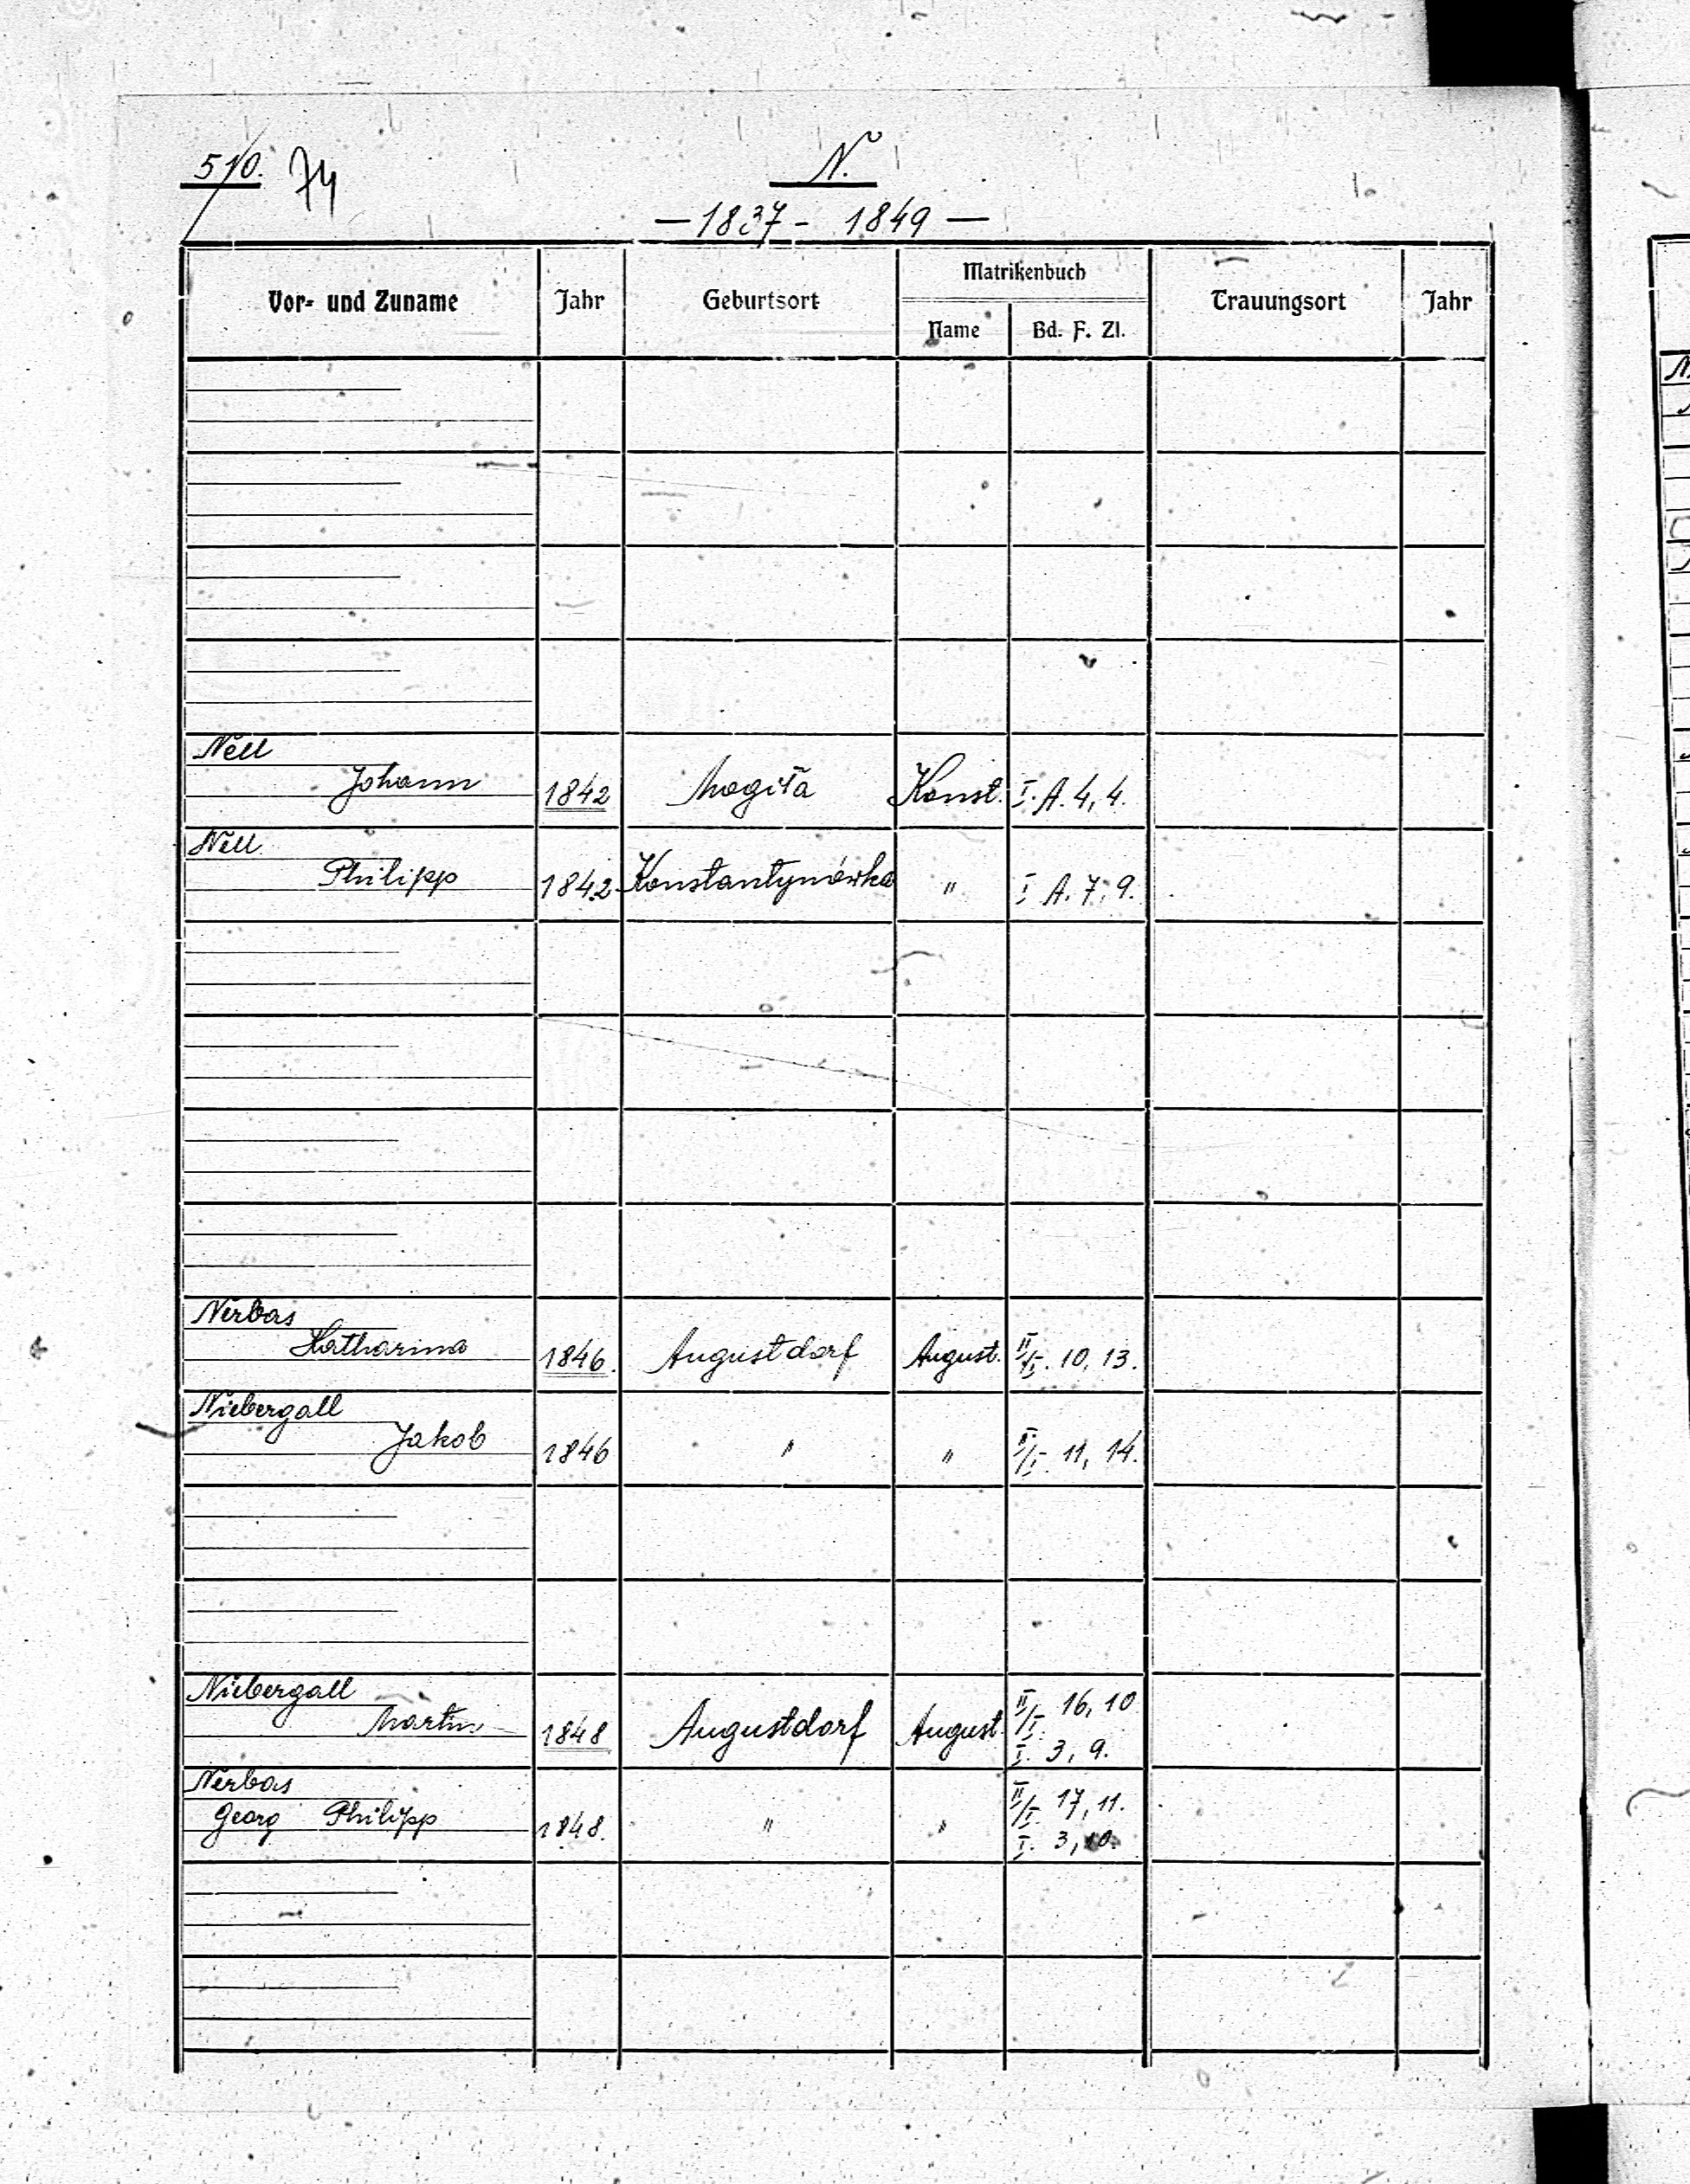 510. 74
N.
— 1837 - 1849 —
Vor- und Zuname Jahr Geburtsort Matrikenbuch Trauungsort Jahr
Name Bd. F. Zl.
Nell
Johann 1842 Mogiła Konst. I. A. 4, 4.
Nell
Philipp 1842 Konstantynówka " I A. 7, 9.
Nerbas
Katharina 1846. Augustdorf August. II/I. 10, 13.
Niebergall
Jakob 1846 " " II/I. 11, 14.
Niebergall
Martin 1848 Augustdorf August. II/I. 16, 10
I. 3, 9.
Nerbas
Georg Philipp 1848. " " II/I. 17, 11.
I. 3, 10.